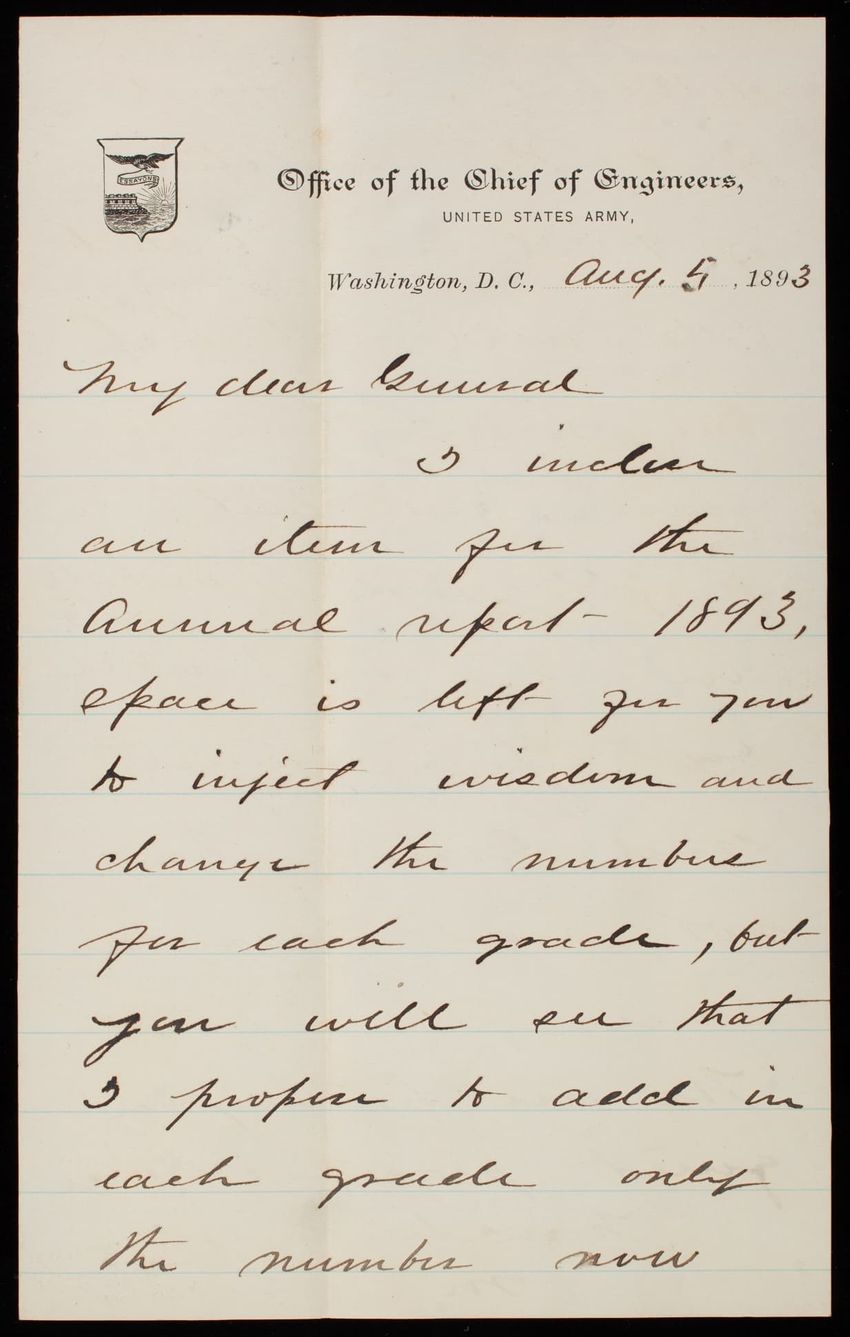 ESSAYONS
Office of the Chief of Engineers,
UNITED STATES ARMY,
Washington, D. C., Aug. 5, 1893
My dear General
I inclose
an item for the
Annual report 1893,
space is left for you
to inject wisdom and
change the numbers
for each grade, but
you will see that
I propose to add in
each grade only
the number now